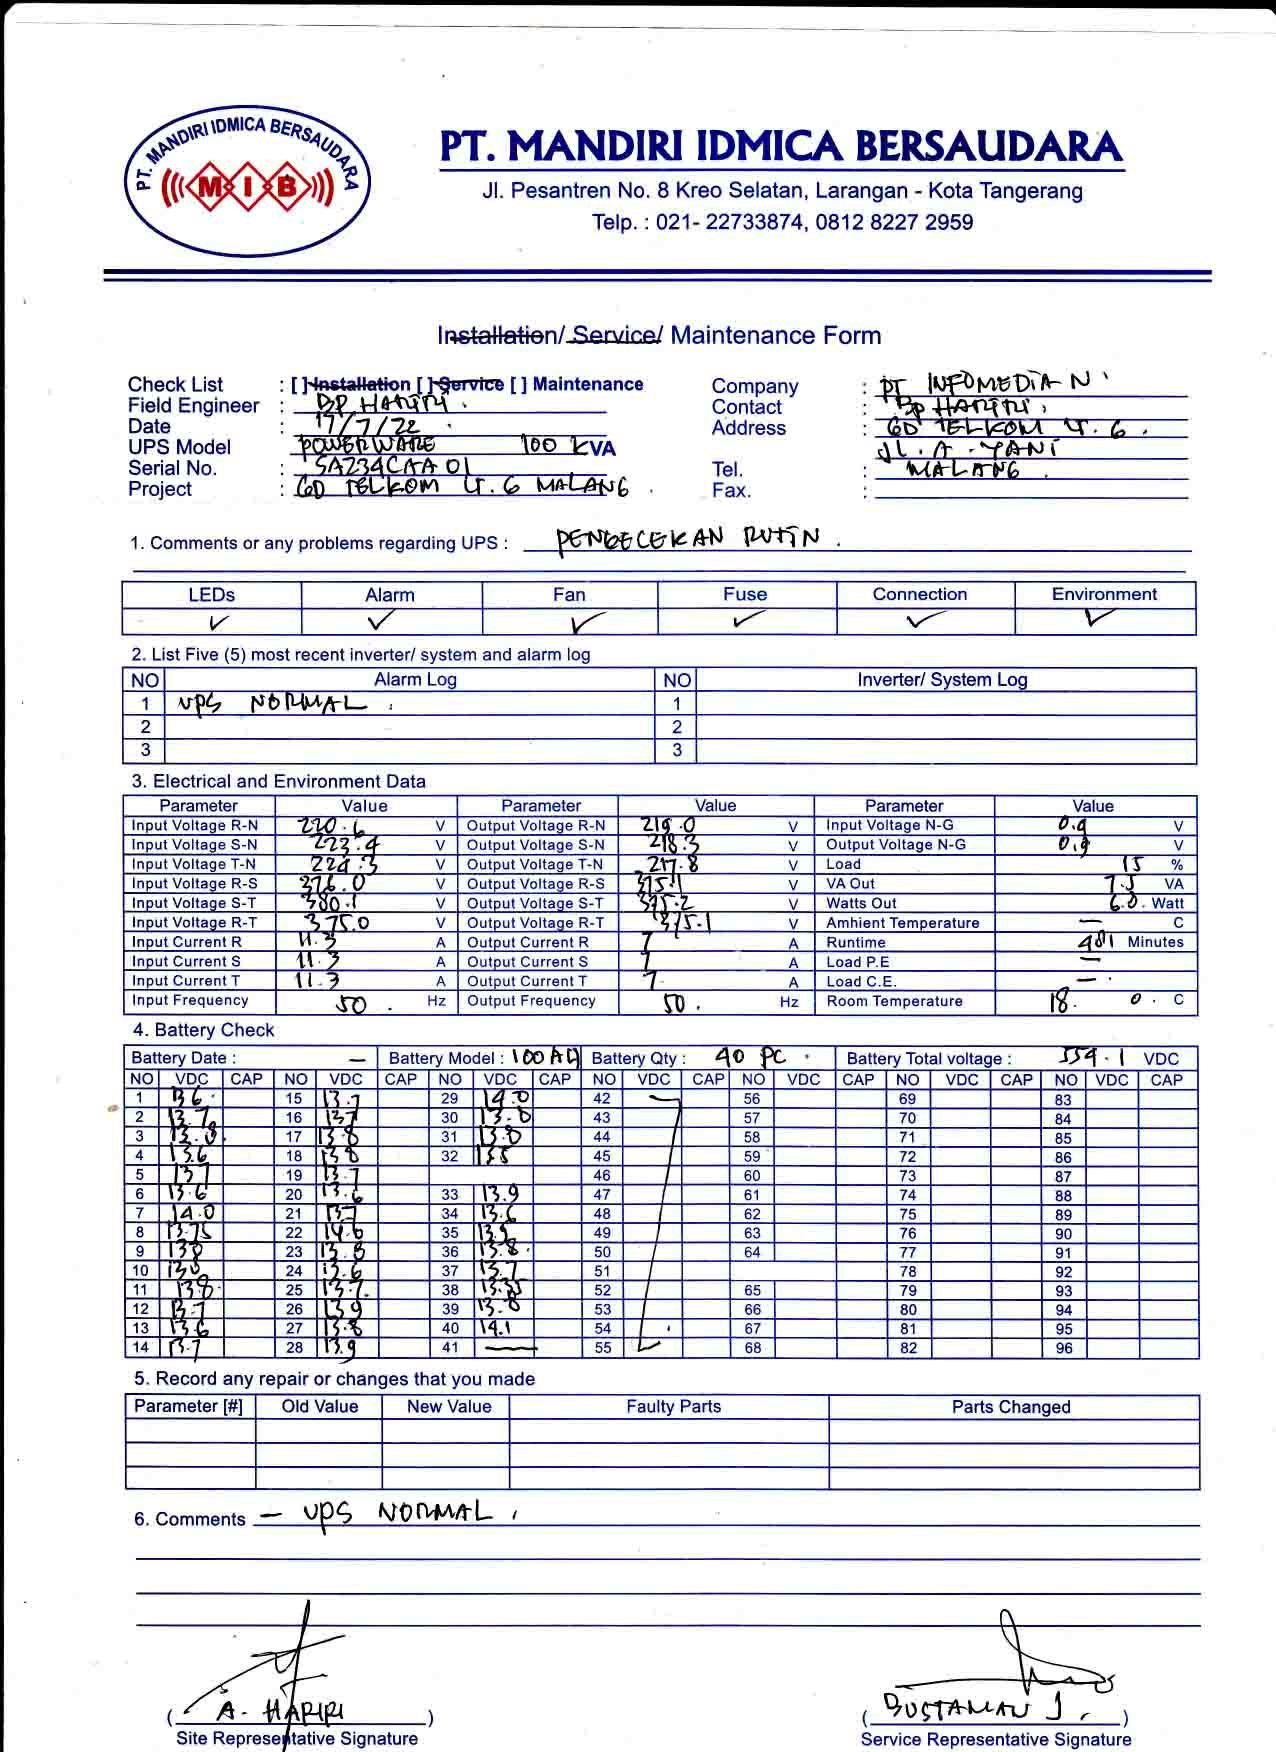 PT. MANDIRI IDMICA BERSAUDARA
M I B
PT. MANDIRI IDMICA BERSAUDARA
Jl. Pesantren No. 8 Kreo Selatan, Larangan - Kota Tangerang
Telp. : 021- 22733874, 0812 8227 2959
Installation/ Service/ Maintenance Form
Check List : [ ] Installation [ ] Service [ ] Maintenance Company : PT INFOMEDIA N.
Field Engineer : BP HARIRI. Contact : BP HARIRI.
Date : 17/7/22. Address : GD TELKOM LT. 6.
UPS Model POWERWARE 100 KVA JL. A. YANI
Serial No. : SA234CAA01 Tel. : MALANG.
Project : GD TELKOM LT. 6 MALANG. Fax. :
1. Comments or any problems regarding UPS : PENGECEKAN RUTIN.
LEDs Alarm Fan Fuse Connection Environment
✓ ✓ ✓ ✓ ✓ ✓
2. List Five (5) most recent inverter/ system and alarm log
NO Alarm Log NO Inverter/ System Log
1 UPS NORMAL. 1
2 2
3 3
3. Electrical and Environment Data
Parameter Value Parameter Value Parameter Value
Input Voltage R-N 220.6 V Output Voltage R-N 219.0 V Input Voltage N-G V
Input Voltage S-N 223.4 V Output Voltage S-N 218.3 V Output Voltage N-G V
Input Voltage T-N 224.3 V Output Voltage T-N 217.8 V Load 15 %
Input Voltage R-S 376.0 V Output Voltage R-S 375.1 V VA Out 7.5 VA
Input Voltage S-T 380.1 V Output Voltage S-T 375.2 V Watts Out 6.0. Watt
Input Voltage R-T 375.0 V Output Voltage R-T 375.1 V Amhient Temperature — C
Input Current R 11.3 A Output Current R 7 A Runtime Minutes
Input Current S 11.3 A Output Current S 7 A Load P.E —
Input Current T 11.3 A Output Current T 7 A Load C.E. —
Input Frequency 50. Hz Output Frequency 50. Hz Room Temperature 18. 0. C
4. Battery Check
Battery Date : — Battery Model : 100 AH Battery Qty : 40 PC. Battery Total voltage : 559.1 VDC
NO VDC CAP NO VDC CAP NO VDC CAP NO VDC CAP NO VDC CAP NO VDC CAP NO VDC CAP
1 13.6 15 13.7 29 14.0 42 56 69 83
2 13.7 16 13.7 30 13.8 43 57 70 84
3 17 13.8 31 13.8 44 58 71 85
4 13.6 18 13.8 32 45 59 72 86
5 137 19 13.7 46 60 73 87
6 13.6 20 13.6 33 13.9 47 61 74 88
7 14.0 21 137 34 13.6 48 62 75 89
8 13.75 22 14.6 35 49 63 76 90
9 138 23 13.8 36 13.8. 50 64 77 91
10 24 13.6 37 13.7 51 78 92
11 13.8 25 13.7. 38 13.35 52 65 79 93
12 13.7 26 13.9 39 13.8 53 66 80 94
13 13.6 27 13.8 40 14.1 54 67 81 95
14 13.7 28 13.9 41 — 55 68 82 96
5. Record any repair or changes that you made
Parameter [#] Old Value New Value Faulty Parts Parts Changed
6. Comments — UPS NORMAL.
( A. HARIRI ) ( BUSTAMAN J. )
Site Representative Signature Service Representative Signature